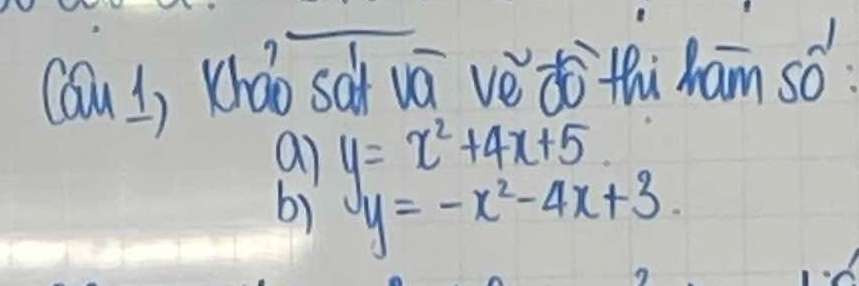 Câu 1, Khảo sát và vẽ đồ thị hàm số:
a) y = x² + 4x + 5.
b) y = -x² - 4x + 3.